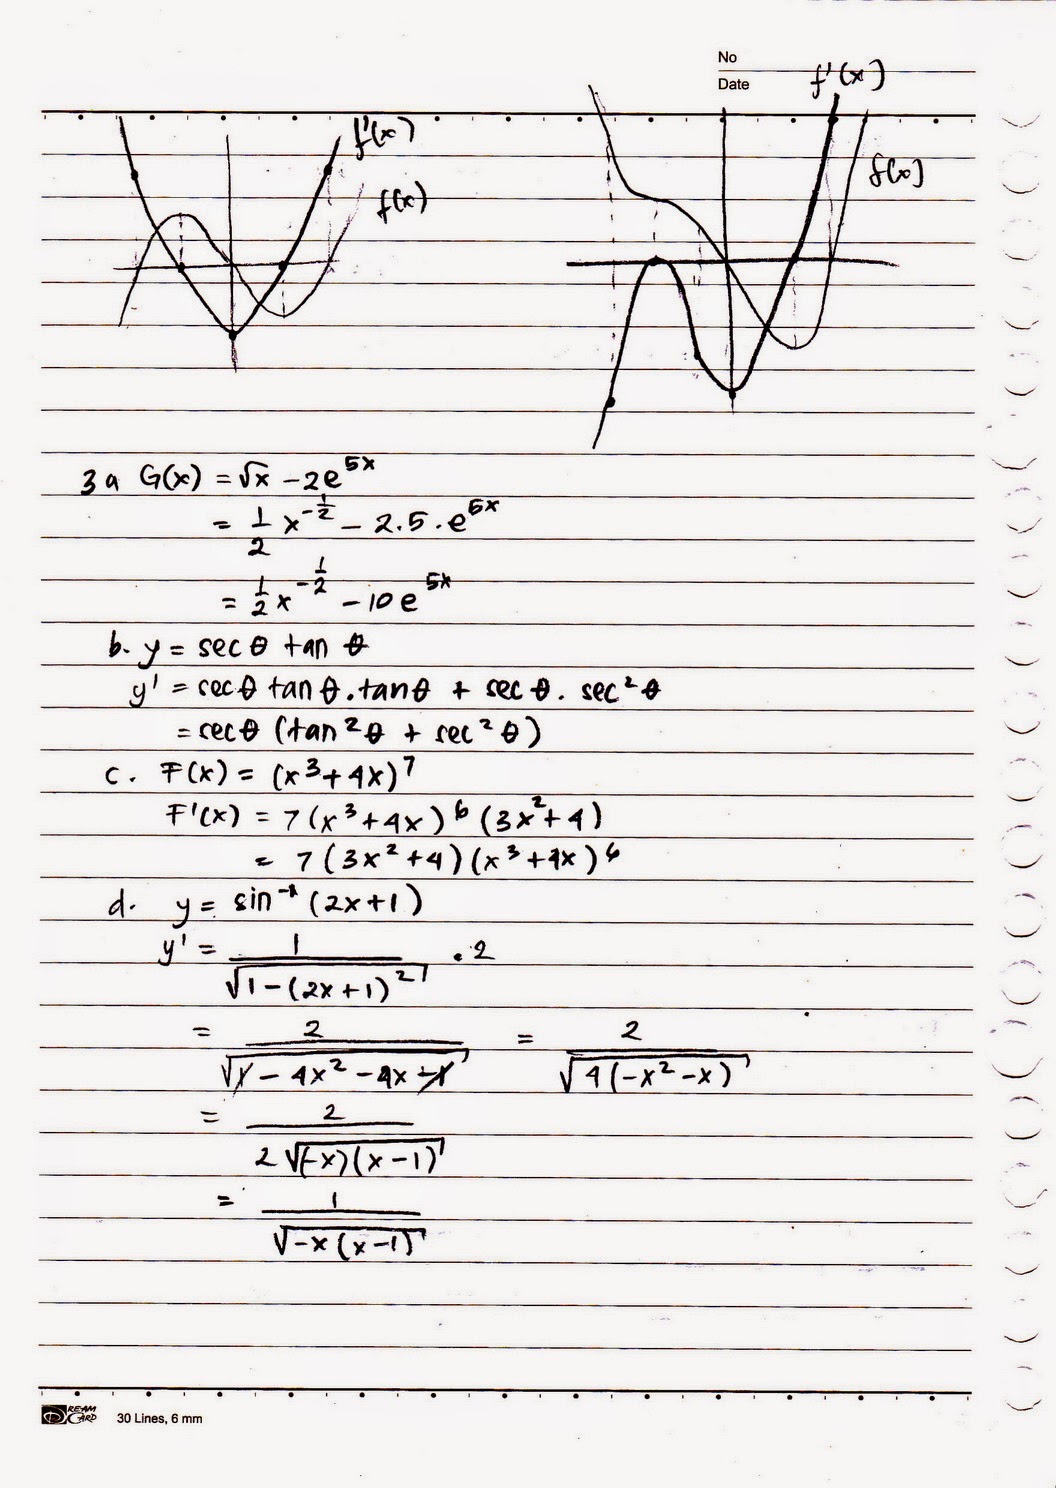 No
Date
f'(x)
f'(x)
f(x)
f(x)
3 a G(x) = √x - 2e^5x
= 1/2 x^-1/2 - 2.5.e^5x
= 1/2 x^-1/2 - 10e^5x
b. y = sec θ tan θ
y' = sec θ tan θ . tan θ + sec θ . sec² θ
= sec θ (tan² θ + sec² θ)
c. F(x) = (x³ + 4x)⁷
F'(x) = 7(x³ + 4x)⁶ (3x² + 4)
= 7(3x² + 4)(x³ + 4x)⁶
d. y = sin⁻¹ (2x+1)
y' = 1/√(1-(2x+1)²) . 2
= 2/√(1 - 4x² - 4x - 1) = 2/√(4(-x² - x))
= 2/2√((-x)(x-1))
= 1/√(-x(x-1))
DREAM CARD 30 Lines, 6 mm